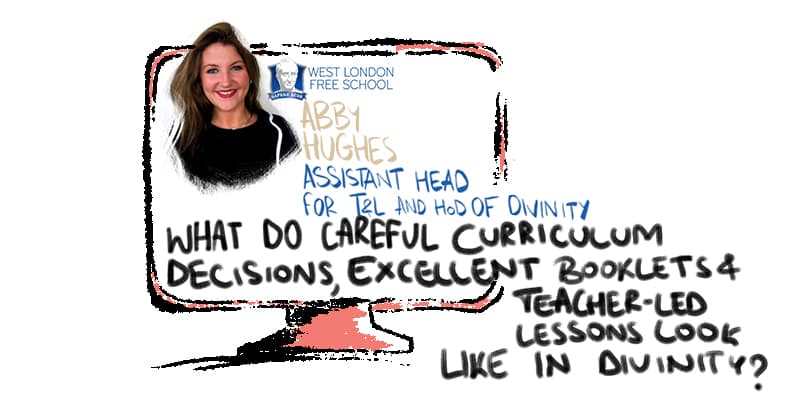 WEST LONDON
FREE SCHOOL
SAPERE AUDE
ABBY
HUGHES
ASSISTANT HEAD
FOR T&L AND HoD OF DIVINITY
WHAT DO CAREFUL CURRICULUM
DECISIONS, EXCELLENT BOOKLETS &
TEACHER-LED
LESSONS LOOK
LIKE IN DIVINITY?